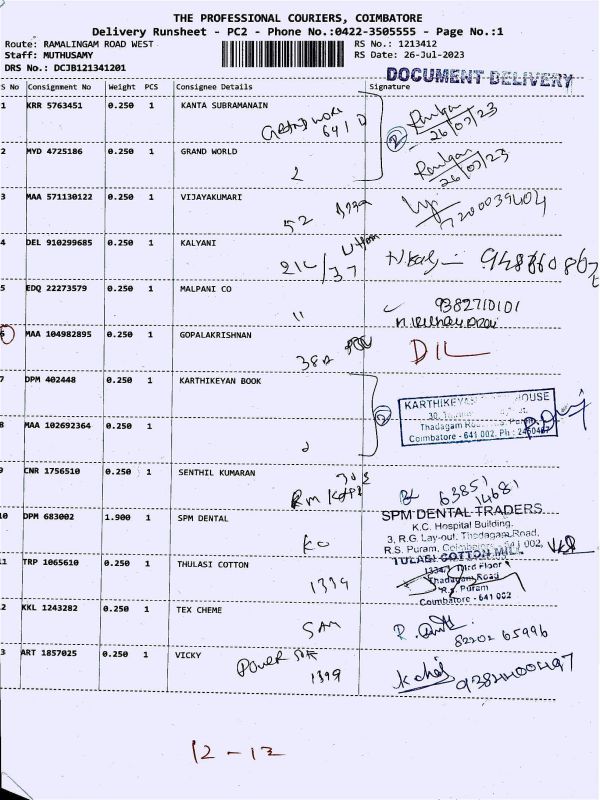 THE PROFESSIONAL COURIERS, COIMBATORE
Delivery Runsheet - PC2 - Phone No.:0422-3505555 - Page No.:1
Route: RAMALINGAM ROAD WEST RS No.: 1213412
Staff: MUTHUSAMY RS Date: 26-Jul-2023
DRS No.: DCJB121341201
DOCUMENT DELIVERY
S No Consignment No Weight PCS Consignee Details Signature
1 KRR 5763451 0.250 1 KANTA SUBRAMANAIN
GRAND WORL 641 D
26/07/23
2 MYD 4725186 0.250 1 GRAND WORLD
26/07/23
3 MAA 571130122 0.250 1 VIJAYAKUMARI
52
7200039404
4 DEL 910299685 0.250 1 KALYANI
21L/37
5 EDQ 22273579 0.250 1 MALPANI CO
11 9382710101
6 MAA 104982895 0.250 1 GOPALAKRISHNAN
38A DIL
7 DPM 402448 0.250 1 KARTHIKEYAN BOOK
KARTHIKEYAN HOUSE
Thadagam
Coimbatore - 641 002. Ph :
8 MAA 102692364 0.250 1
9 CNR 1756510 0.250 1 SENTHIL KUMARAN
63851
14681
10 DPM 683002 1.900 1 SPM DENTAL
SPM DENTAL TRADERS
K.C. Hospital Building,
3, R.G. Lay-out, Thadagam Road,
R.S. Puram, Coimbatore - 641 002,
11 TRP 1065610 0.250 1 THULASI COTTON
1399
TULASI COTTON MILL
Third Floor
Thadagam Road
R.S. Puram
Coimbatore - 641 002
12 KKL 1243282 0.250 1 TEX CHEME
82202 65996
13 ART 1857025 0.250 1 VICKY
1399
12 - 12